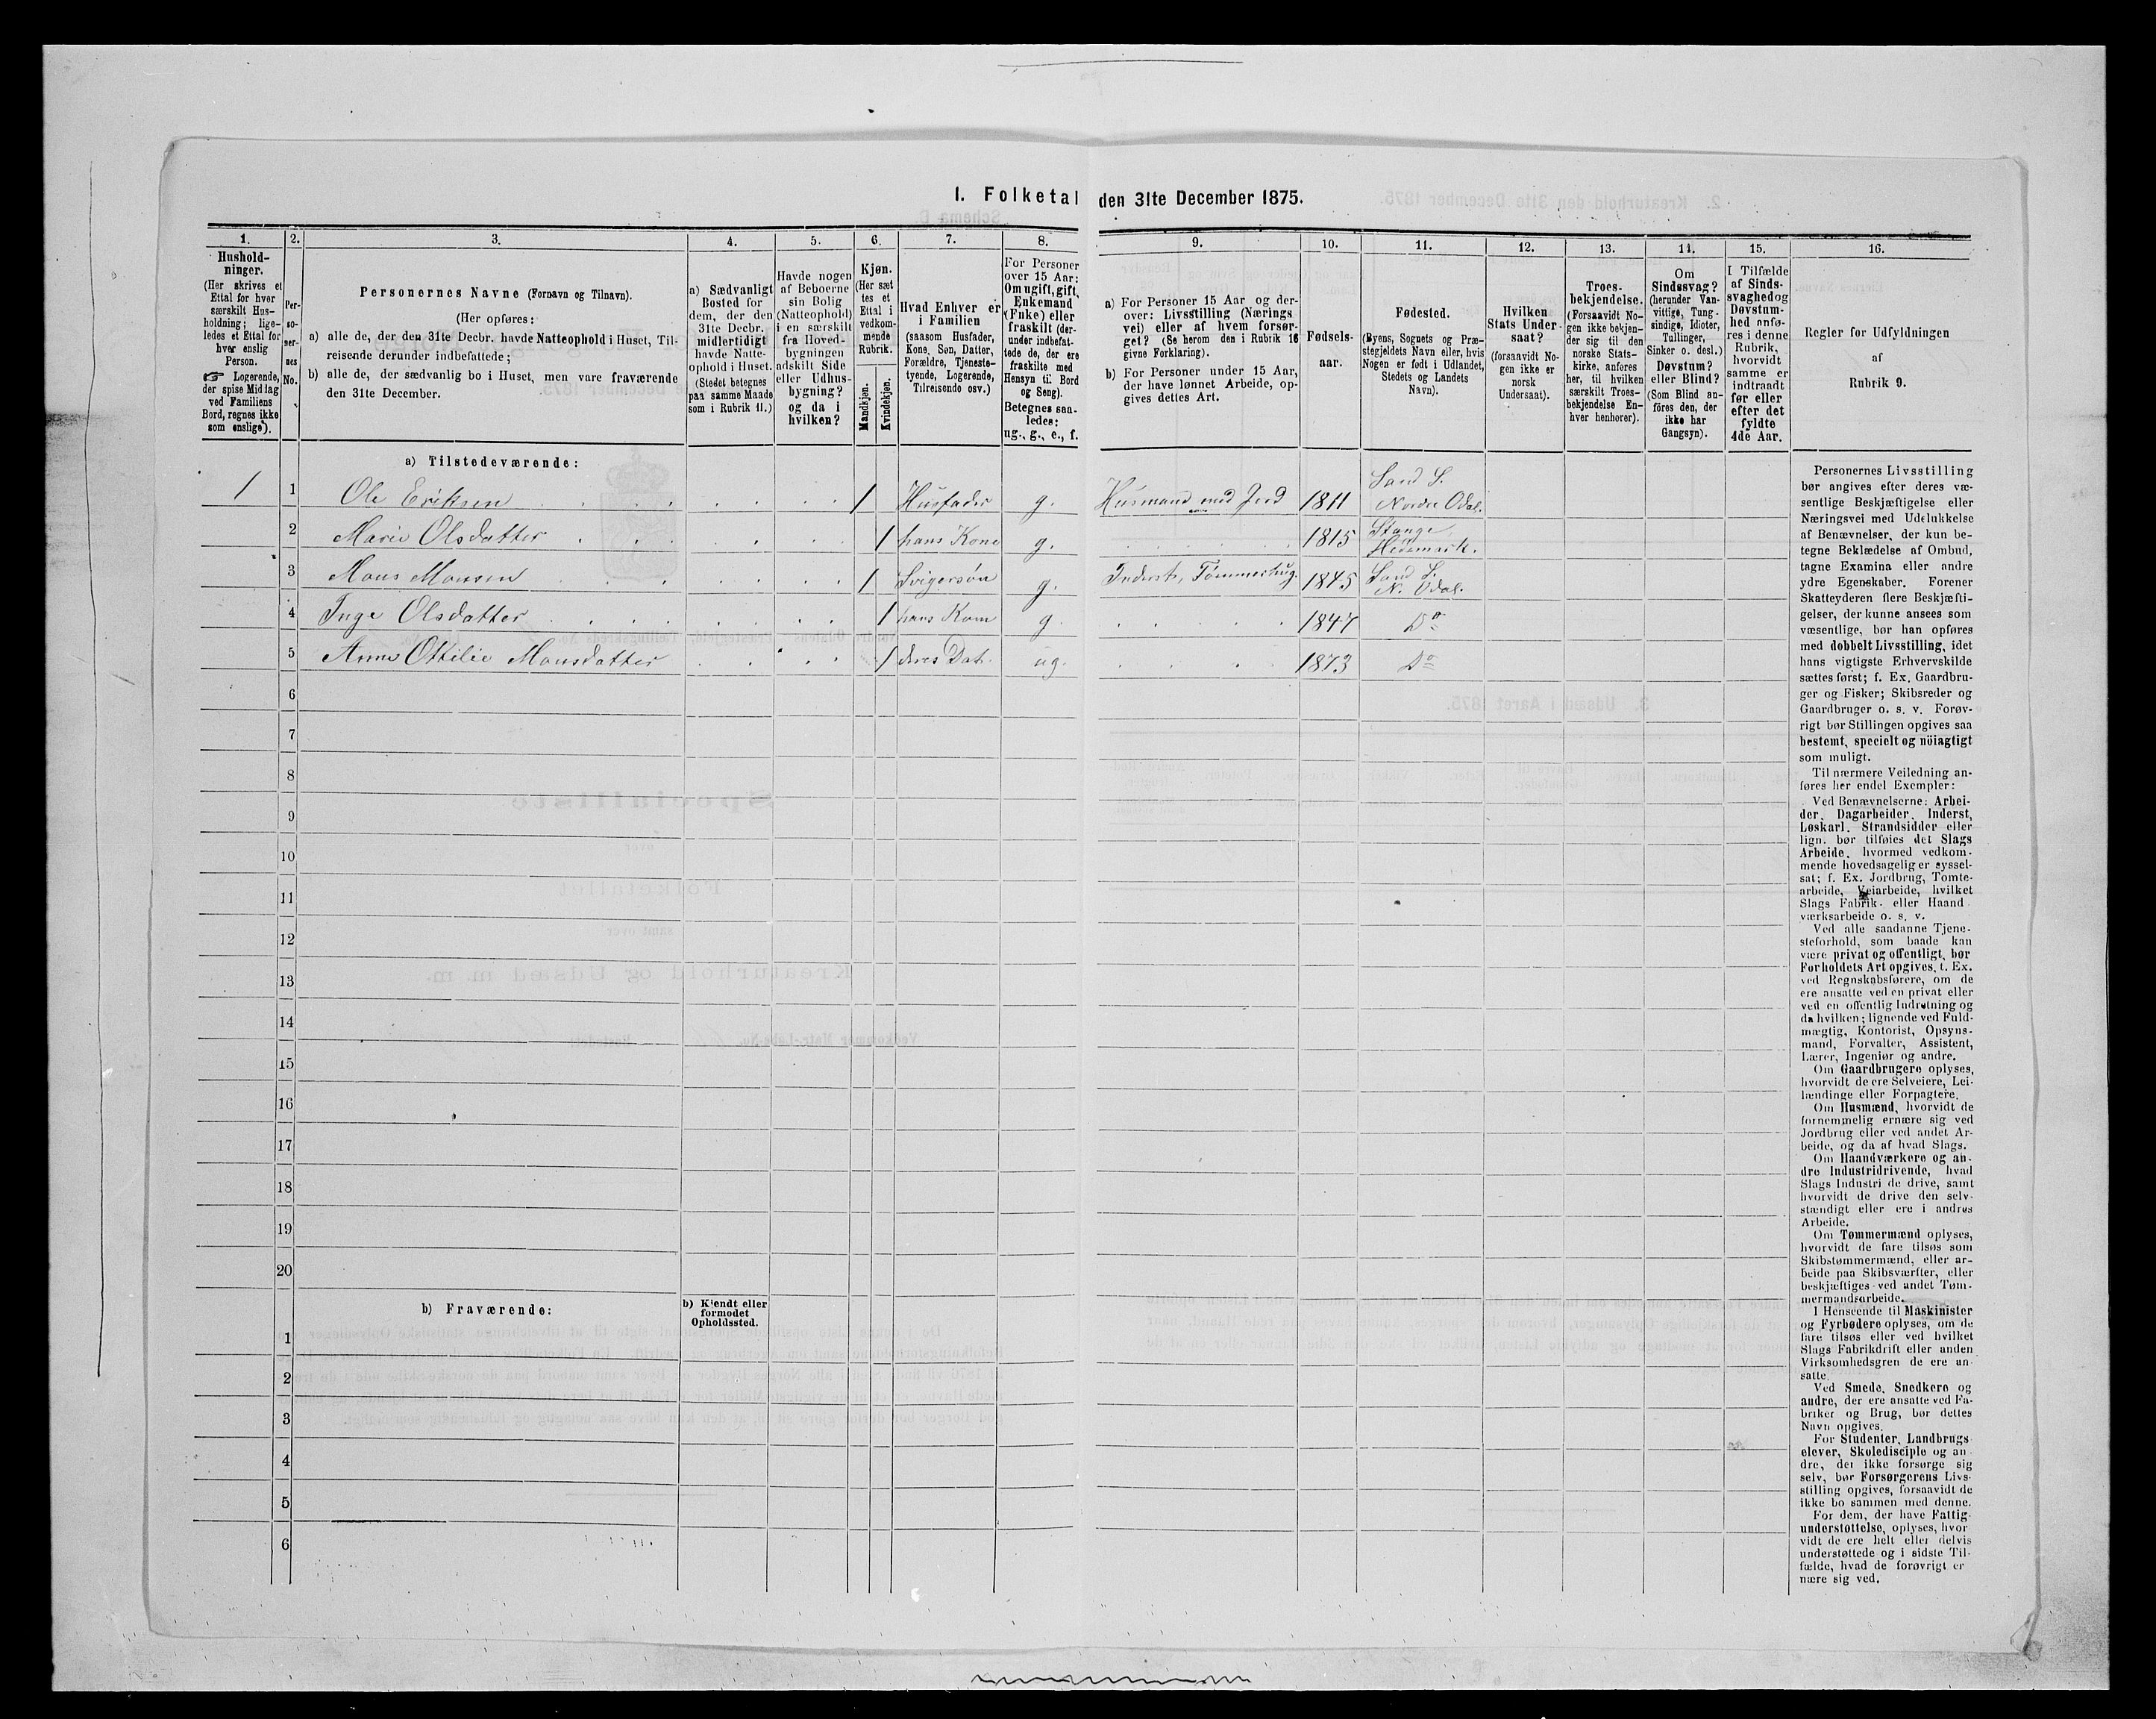 I. Folketal den 31te December 1875.
1. 2. 3. 4. 5. 6. 7. 8. 9. 10. 11. 12. 13. 14. 15. 16.
Hushold-
ninger.
(Her skrives et
Ettal for hver
særskilt Hus-
holdning; lige-
ledes et Ettal for
hver enslig
Person.
☞ Logerende,
der spise Middag
ved Familiens
Bord, regnes ikke
som enslige).
Per-
so-
ner-
nes
No.
Personernes Navne (Fornavn og Tilnavn).
(Her opføres:
a) alle de, der den 31te Decbr. havde Natteophold i Huset, Til-
reisende derunder indbefattede;
b) alle de, der sædvanlig bo i Huset, men vare fraværende
den 31te December.
a) Sædvanligt
Bosted for
dem, der den
31te Decbr.
midlertidigt
havde Natte-
ophold i Huset.
(Stedet betegnes
paa samme Maade
som i Rubrik 11.)
Havde nogen
af Beboerne
sin Bolig
(Natteophold)
i en særskilt
fra Hoved-
bygningen
adskilt Side
eller Udhus-
bygning?
og da i
hvilken?
Kjøn.
(Her sæt
tes et
Ettal i
vedkom-
mende
Rubrik.
Mandkjøn.
Kvindekjøn.
Hvad Enhver er
i Familien
(saasom Husfader,
Kone, Søn, Datter,
Forældre, Tjeneste-
tyende, Logerende,
Tilreisende osv.)
For Personer
over 15 Aar:
Om ugift, gift,
Enkemand
(Enke) eller
fraskilt (der-
under indbefat-
tede de, der ere
fraskilte med
Hensyn til Bord
og Seng).
Betegnes saa-
ledes:
ug., g., e., f.
a) For Personer 15 Aar og der-
over: Livsstilling (Nærings
vei) eller af hvem forsør-
get? (Se herom den i Rubrik 16
givne Forklaring).
b) For Personer under 15 Aar,
der have lønnet Arbeide, op-
gives dettes Art.
Fødsels-
aar.
Fødested.
(Byens, Sognets og Præ-
stegjeldets Navn eller, hvis
Nogen er født i Udlandet,
Stedets og Landets
Navn).
Hvilken
Stats Under-
saat?
(forsaavidt No-
gen ikke er
norsk
Undersaat).
Troes-
bekjendelse.
(Forsaavidt No-
gen ikke bekjen-
der sig til den
norske Stats-
kirke, anføres
her, til hvilken
særskilt Troes-
bekjendelse En-
hver henhører).
Om
Sindssvag?
(herunder Van-
vittige, Tung-
sindige, Idioter,
Tullinger,
Sinker o. desl.)
Døvstum?
eller Blind?
(Som Blind an-
föres den, der
ikke har
Gangsyn).
I Tilfælde
af Sinds-
svaghed og
Døvstum-
hed anfø-
res i denne
Rubrik,
hvorvidt
samme er
indtraadt
før eller
efter det
fyldte
4de Aar.
Regler for Udfyldningen
af
Rubrik 9.
a) Tilstedeværende:
1 1 Ole Eriksen 1 Husfader g. Husmand med Jord 1811 Sand S. Nordre Odal.
2 Marie Olsdatter 1 hans Kone g. 1815 Stange Hedemark.
3 Mons Monsen 1 Svigersøn g. Inderst, Tømmerhug. 1845 Sand S. N. Odal.
4 Inge Olsdatter 1 hans Kone g. 1847 Do
5 Anne Ottilie Monsdatter 1 deres Dat. ug. 1873 Do
6
7
8
9
10
11
12
13
14
15
16
17
18
19
20
b) Fraværende:
b) Kjendt eller
formodet
Opholdssted.
1
2
3
4
5
6
Personernes Livsstilling
bør angives efter deres væ-
sentlige Beskjæftigelse eller
Næringsvei med Udelukkelse
af Benævnelser, der kun be-
tegne Beklædelse af Ombud,
tagne Examina eller andre
ydre Egenskaber. Forener
Skatteyderen flere Beskjæfti-
gelser, der kunne ansees som
væsentlige, bør han opføres
med dobbelt Livsstilling, idet
hans vigtigste Erhvervskilde
sættes først; f. Ex. Gaardbru-
ger og Fisker; Skibsreder og
Gaardbruger o. s. v. Forøv-
rigt bør Stillingen opgives saa
bestemt, specielt og nöiagtigt
som muligt.
Til nærmere Veiledning an-
føres her endel Exempler:
Ved Benævnelserne: Arbei-
der, Dagarbeider, Inderst,
Løskarl, Strandsidder eller
lign. bør tilføies det Slags
Arbeide, hvormed vedkom-
mende hovedsagelig er syssel-
sat; f. Ex. Jordbrug, Tomte-
arbeide, Veiarbeide, hvilket
Slags Fabrik- eller Haand-
værksarbeide o. s. v.
Ved alle saadanne Tjene-
steforhold, som baade kan
være privat og offentligt, bør
Forholdets Art opgives, t. Ex.
ved Regnskabsførere, om de
ere ansatte ved en privat eller
ved en offentlig Indretning og
da hvilken; lignende ved Fuld-
mægtig, Kontorist, Opsyns-
mand, Forvalter, Assistent,
Lærer, Ingeniør og andre.
Om Gaardbrugere oplyses,
hvorvidt de ere Selveiere, Lei-
lændinge eller Forpagtere.
Om Husmænd, hvorvidt de
fornemmelig ernære sig ved
Jordbrug eller ved andet Ar-
beide, og da af hvad Slags.
Om Haandværkere og an-
dre Industridrivende, hvad
Slags Industri de drive, samt
hvorvidt de drive den selv-
stændigt eller ere i andres
Arbeide.
Om Tømmermænd oplyses,
hvorvidt de fare tilsøs som
Skibstømmermænd, eller ar-
beide paa Skibsværfter, eller
beskjæftiges ved andet Tøm-
mermandsarbeide.
I Henseende til Maskinister
og Fyrbødere oplyses, om de
fare tilsøs eller ved hvilket
Slags Fabrikdrift eller anden
Virksomhedsgren de ere an-
satte.
Ved Smede, Snedkere og
andre, der ere ansatte ved Fa-
briker og Brug, bør dettes
Navn opgives.
For Studenter, Landbrugs
elever, Skoledisciple og an-
dre, der ikke forsørge sig
selv, bør Forsørgerens Livs-
stilling opgives, forsaavidt de
ikke bo sammen med denne.
For dem, der have Fattig-
understøttelse, oplyses, hvor
vidt de ere helt eller delvis
understøttede og i sidste Til-
fælde, hvad de forøvrigt er
nære sig ved.